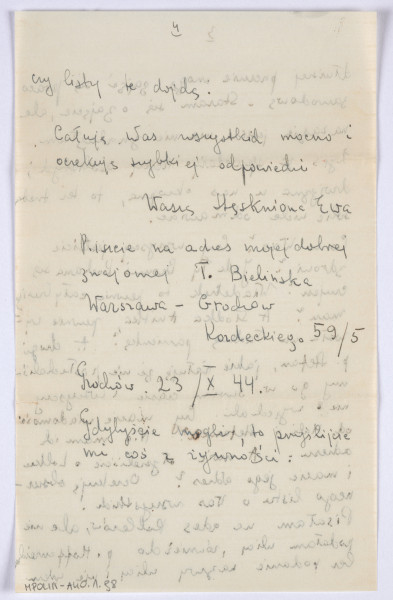 4
czy listy te dojdą.
Całuję Was wszystkich mocno i
oczekuję szybkiej odpowiedzi
Wasza stęskniona Ewa
Piszcie na adres mojej dobrej
znajomej T. Bielińska
Warszawa – Grochów
Kordeckiego 59/5
Grochów. 23/X 44.
Gdybyście mogli, to przyślijcie
mi coś z żywności.
MPOLIN-A40.1.98